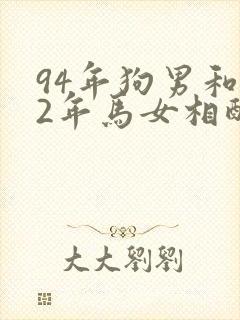 94年狗男和
2年馬女相配
大大劉劉